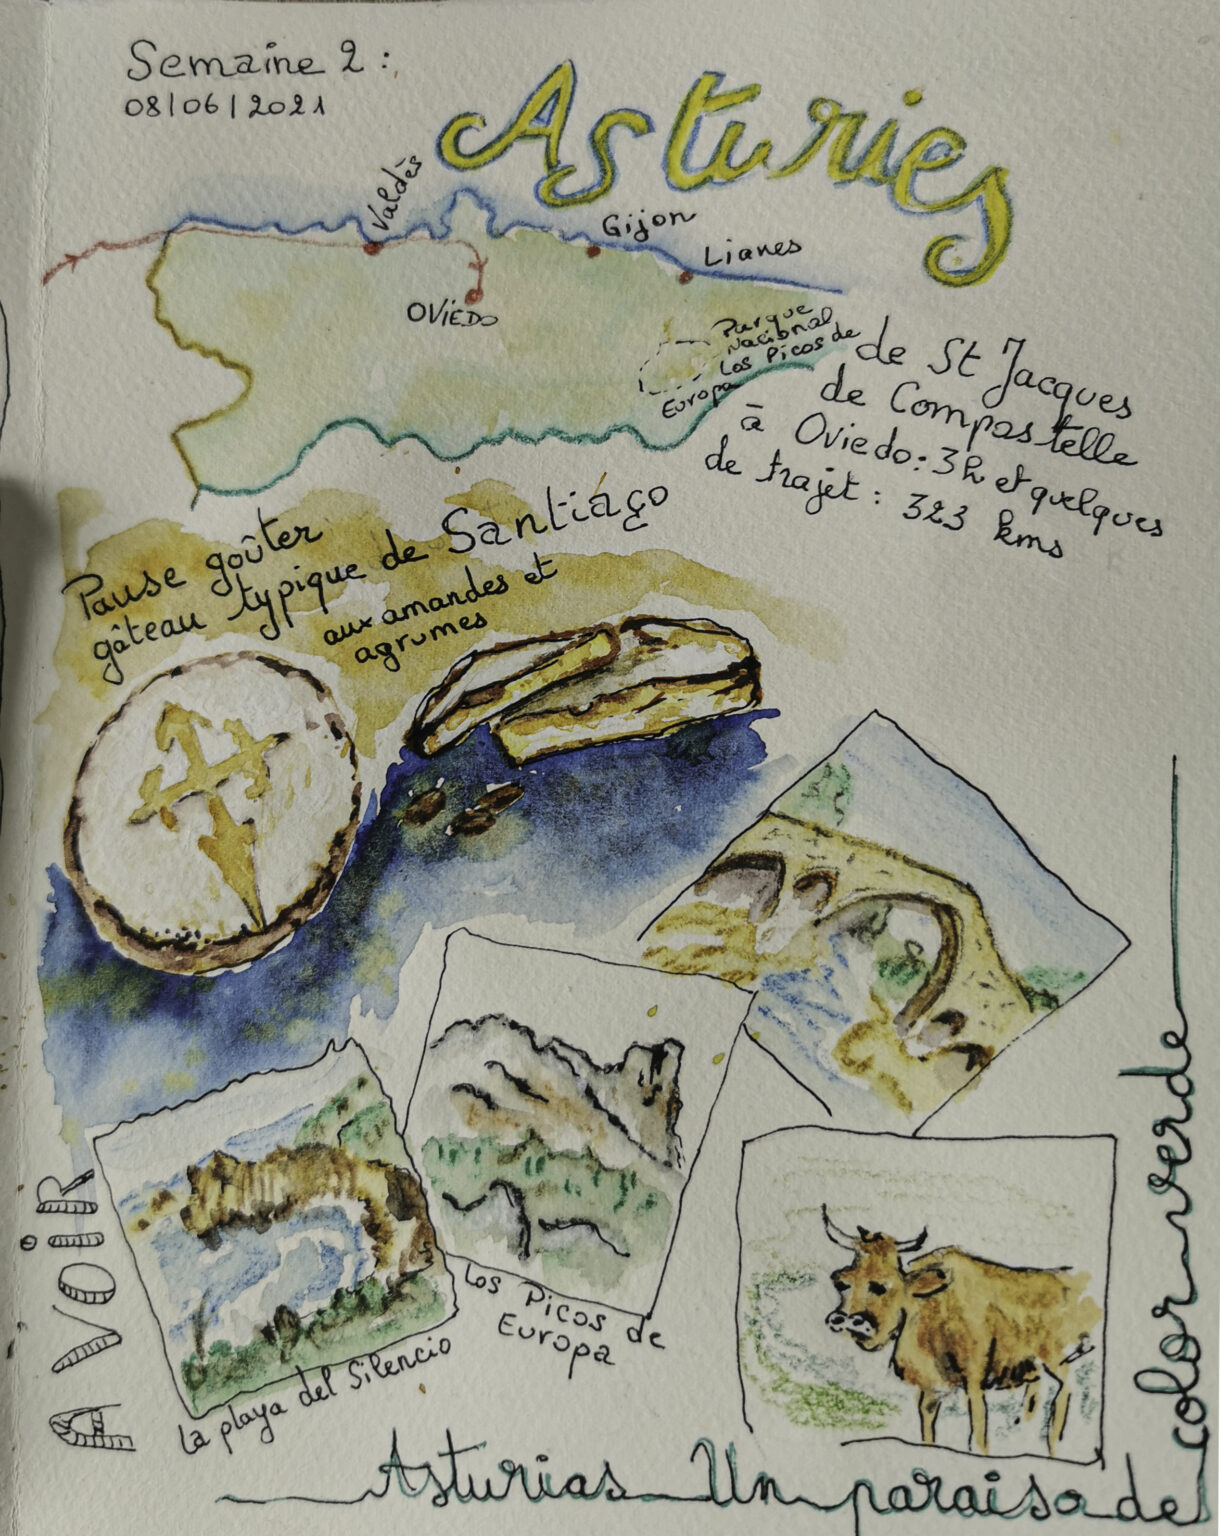 Semaine 2 :
08/06/2021
Asturies
Valdès
Gijon
Lianes
OVIEDO
Parque
Nacional
Los Picos de
Europa
de St Jacques
de Compostelle
à Oviedo : 3h et quelques
de trajet : 323 kms
Pause goûter
gâteau typique de Santiago
aux amandes et
agrumes
A VOIR
la playa del Silencio
Los Picos de
Europa
Asturias Un paraiso de
color verde